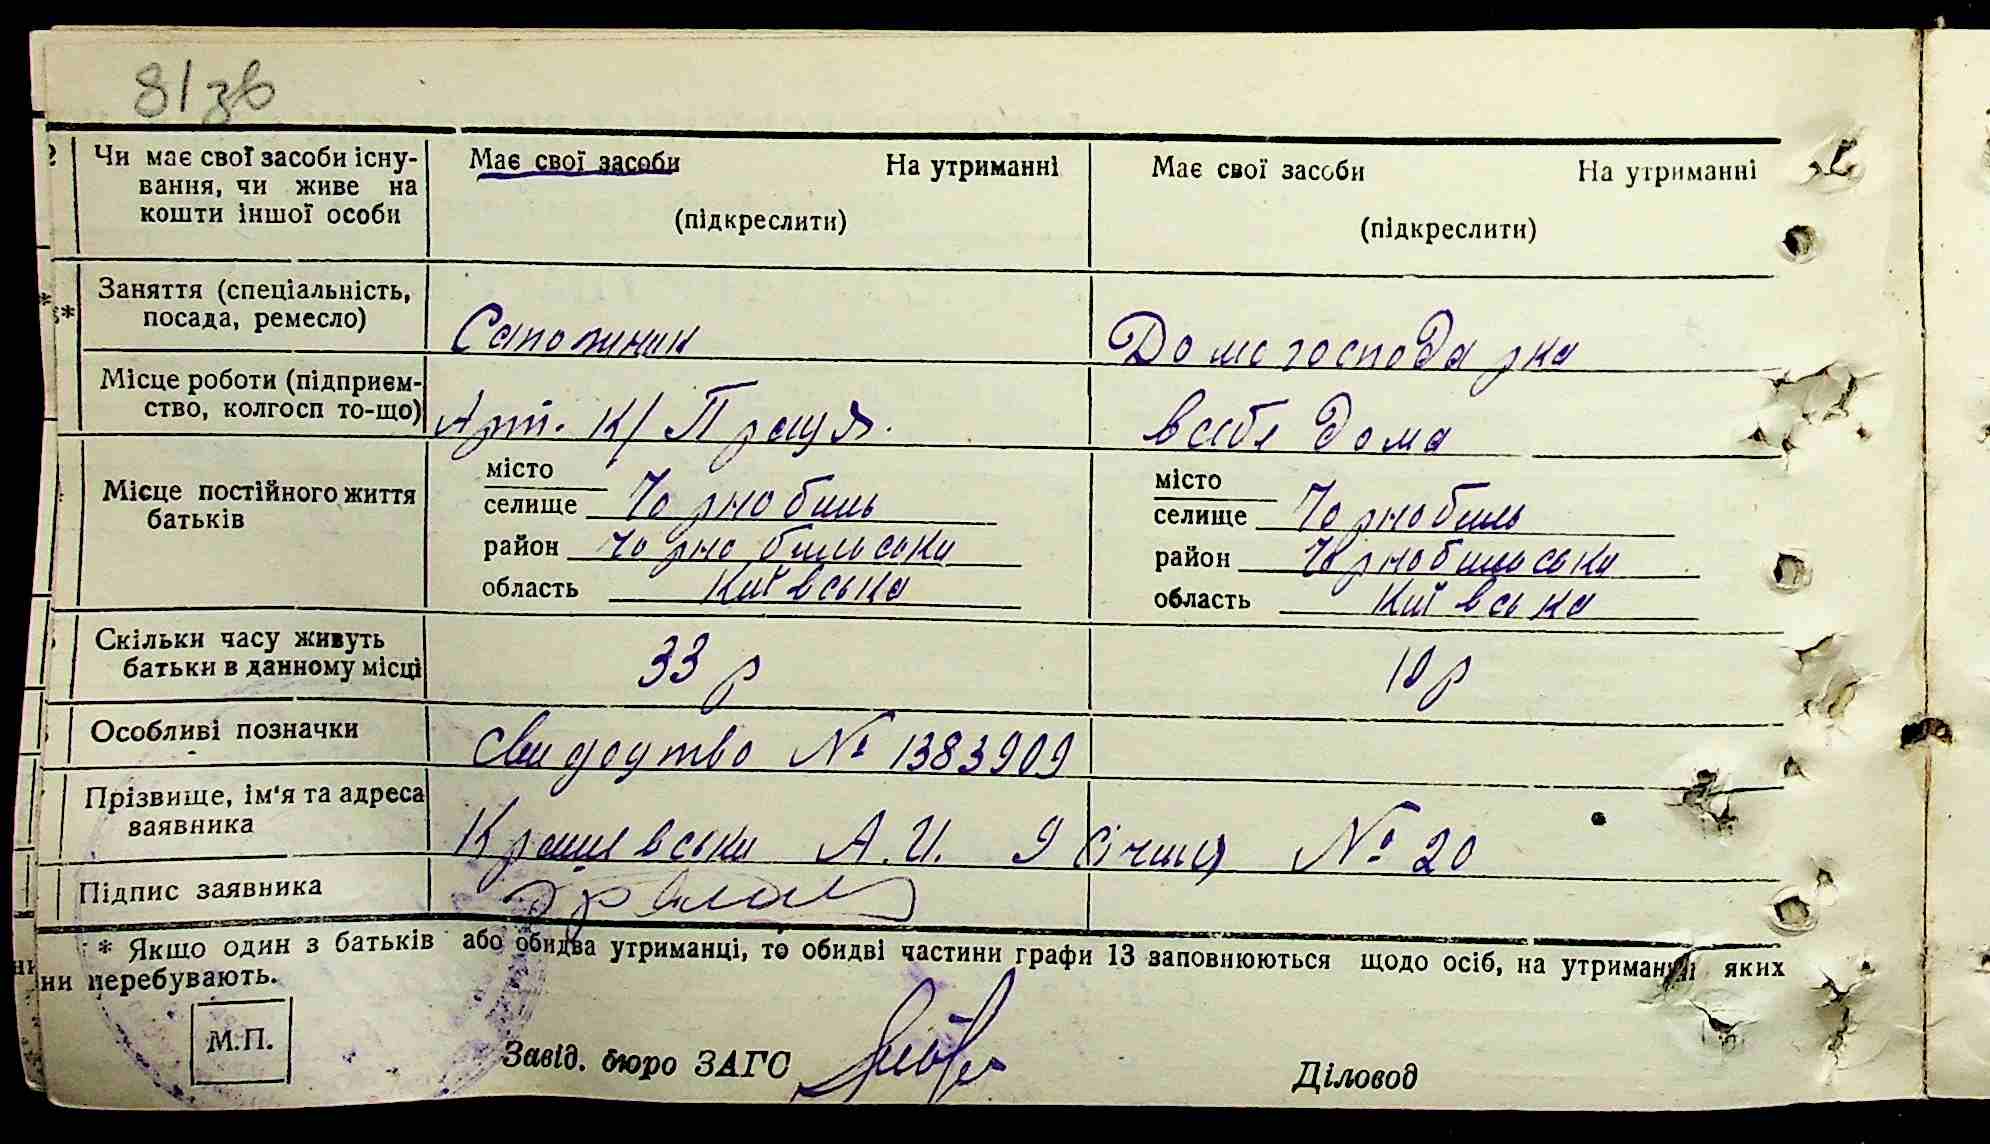 81 зв
Чи має свої засоби існу- Має свої засоби На утриманні Має свої засоби На утриманні
вання, чи живе на
кошти іншої особи (підкреслити) (підкреслити)
Заняття (спеціальність,
посада, ремесло) Сапожник Домогосподарка
Місце роботи (підприєм-
ство, колгосп то-що) Арт. К/Праця. в себе дома
місто місто
Місце постійного життя селище Чорнобиль селище Чорнобиль
батьків район Чорнобильськи район Чорнобильськи
область Київська область Київська
Скільки часу живуть
батьки в данному місці 33 р 10 р
Особливі позначки Свидоцтво № 1383909
Прізвище, ім'я та адреса
заявника А.И. 9 Січня № 20
Підпис заявника
* Якщо один з батьків або обидва утриманці, то обидві частини графи 13 заповнюються щодо осіб, на утриманні яких
ни перебувають.
М.П.
Завід. бюро ЗАГС Діловод